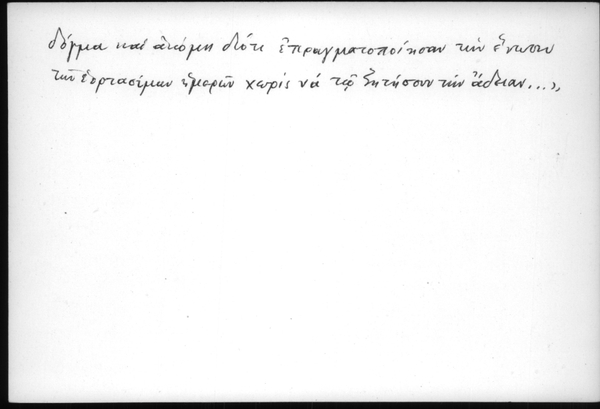 δόγμα καί ἀκόμη διότι ἐπραγματοποίησαν τήν ἕνωσιν
τῶν ἑορτασίμων ἡμερῶν χωρίς νά τῷ ζητήσουν τήν ἄδειαν...»